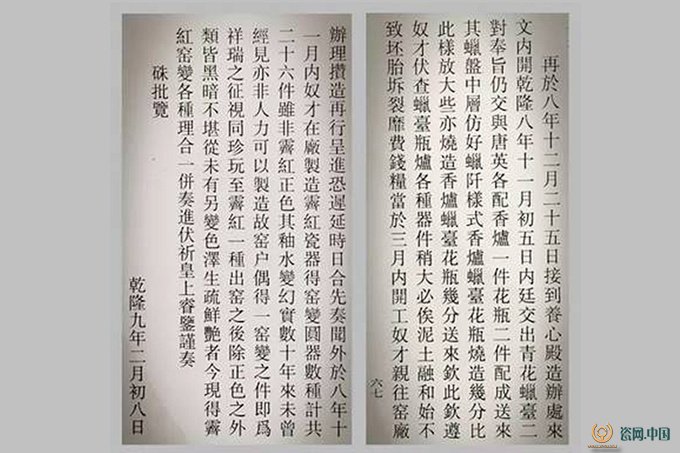 再於八年十二月二十五日接到養心殿造辦處來
文内開乾隆八年十一月初五日内廷交出青花蠟臺二
對奉旨仍交與唐英各配香爐一件花瓶二件配成送來
其蠟盤中層仿好蠟阡樣式香爐蠟臺花瓶燒造幾分比
此樣放大些亦燒造香爐蠟臺花瓶幾分送來欽此欽遵
奴才伏查蠟臺瓶爐各種器件稍大必俟泥土融和始不
致坯胎坼裂靡費錢糧當於三月内開工奴才親往窑廠
六七
辦理攢造再行呈進恐遲延時日合先奏聞外於八年十
一月内奴才在廠製造霽紅瓷器得窑變圓器數種計共
二十六件雖非霽紅正色其釉水變幻實數十年來未曾
經見亦非人力可以製造故窑户偶得一窑變之件即爲
祥瑞之征視同珍玩至霽紅一種出窑之後除正色之外
類皆黑暗不堪從未有另變色澤生疏鮮艷者今現得霽
紅窑變各種理合一併奏進伏祈皇上睿鑒謹奏
硃批覽
乾隆九年二月初八日
瓷网.中国